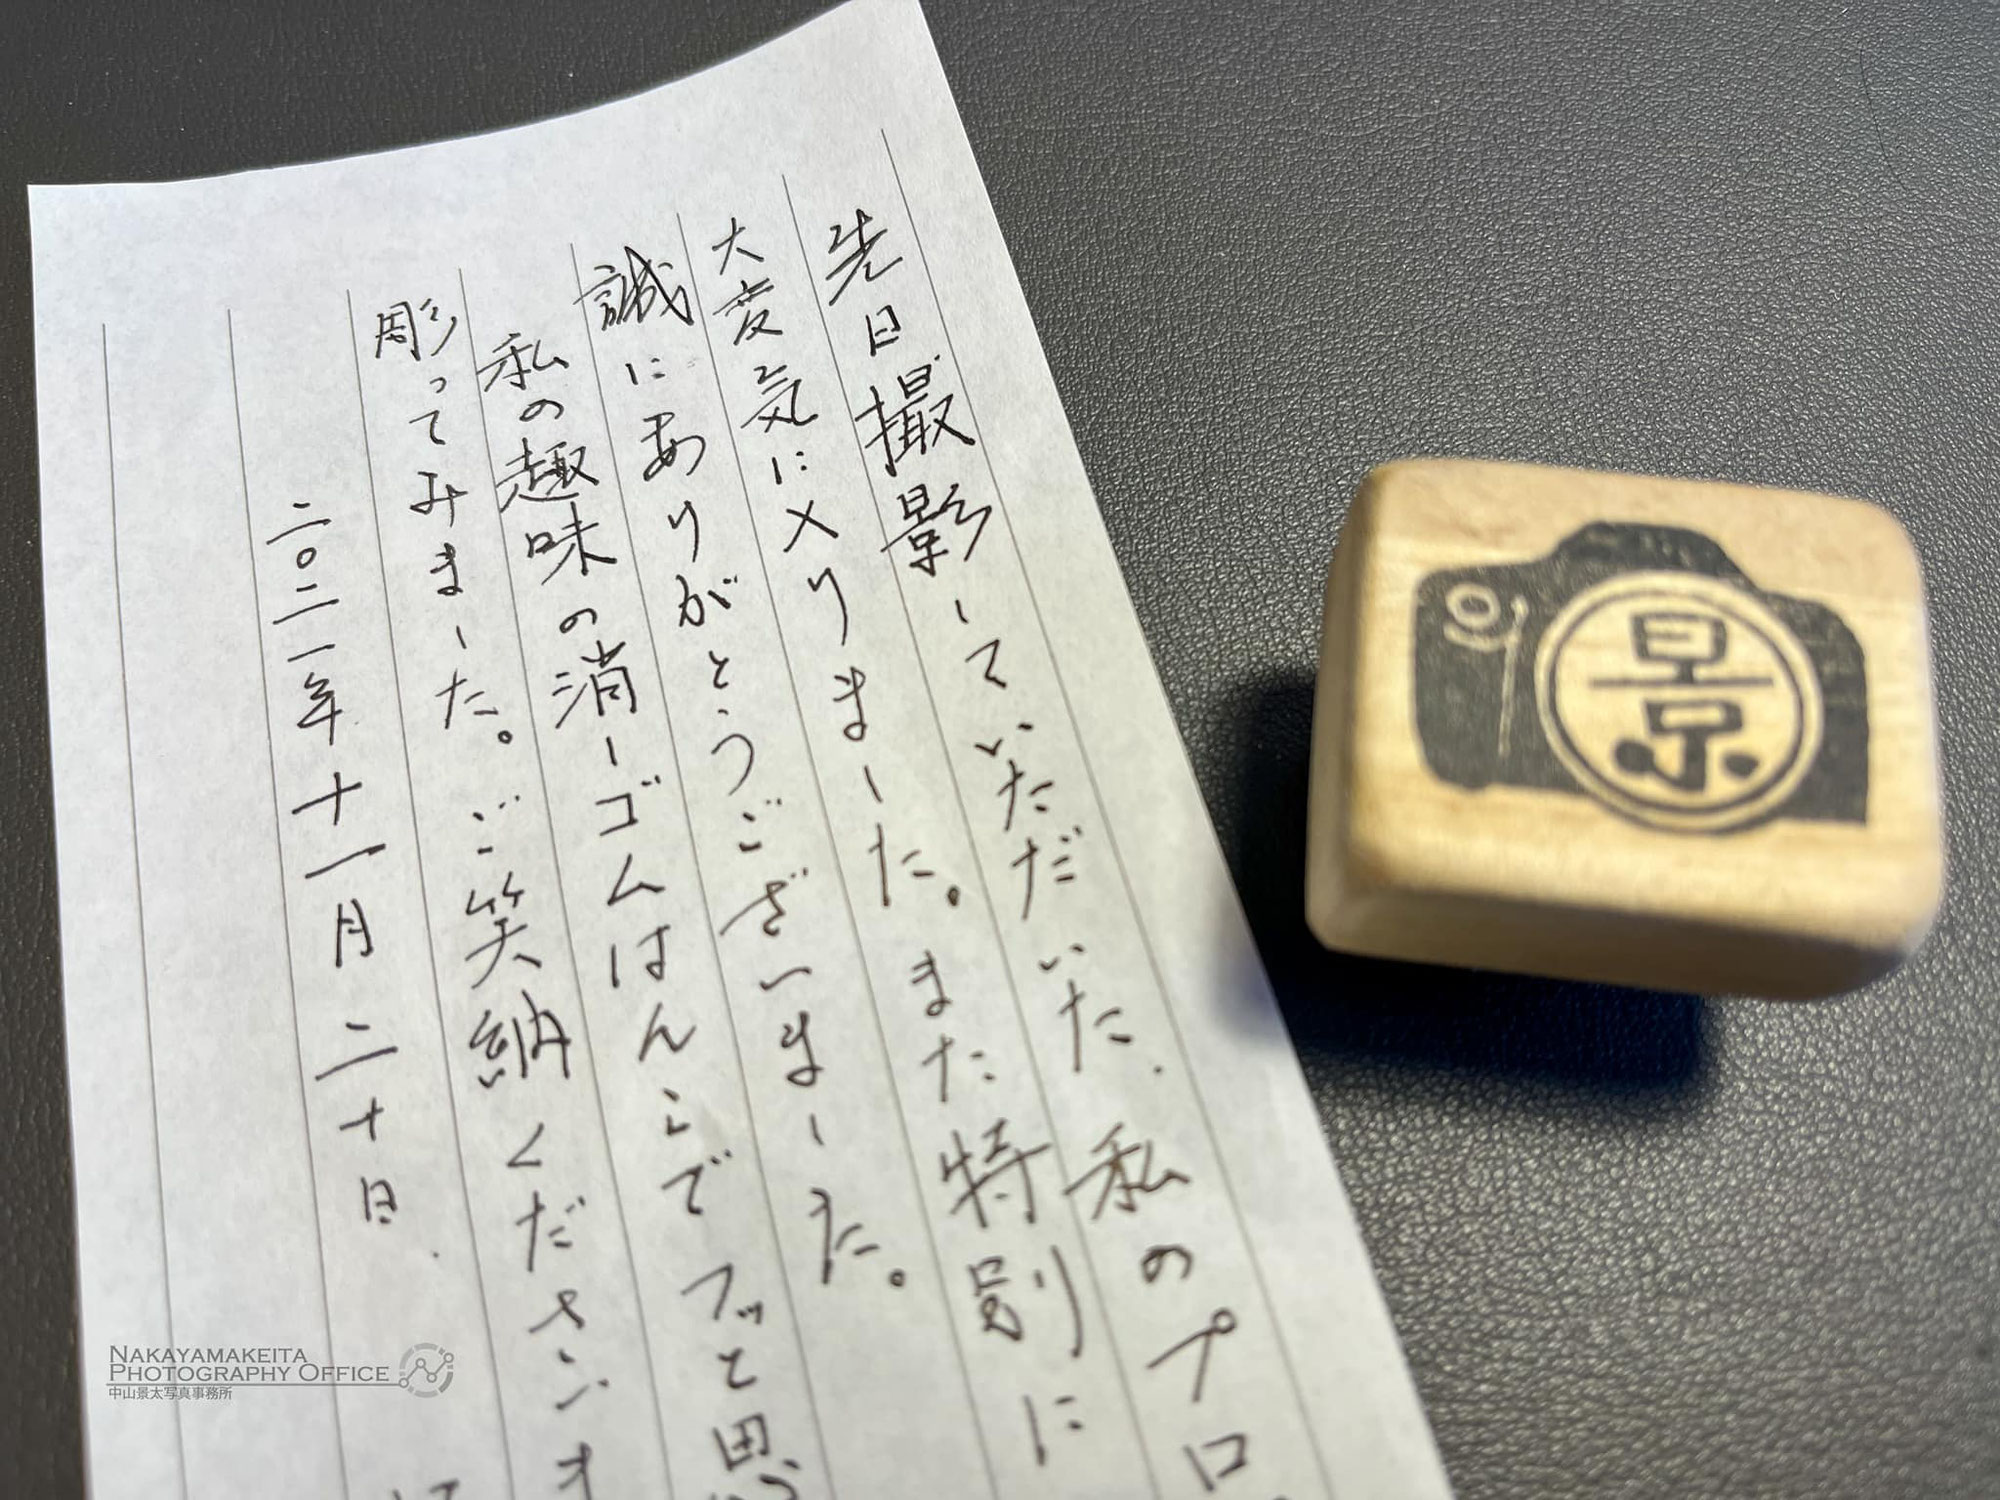 先日撮影していただいた、私のプロ
大変気に入りました。また特別に
誠にありがとうございました。
私の趣味の消しゴムはんこでフッと思
彫ってみました。ご笑納くださいませ
二〇二一年十一月二十日
景
NAKAYAMAKEITA
PHOTOGRAPHY OFFICE
中山景太写真事務所